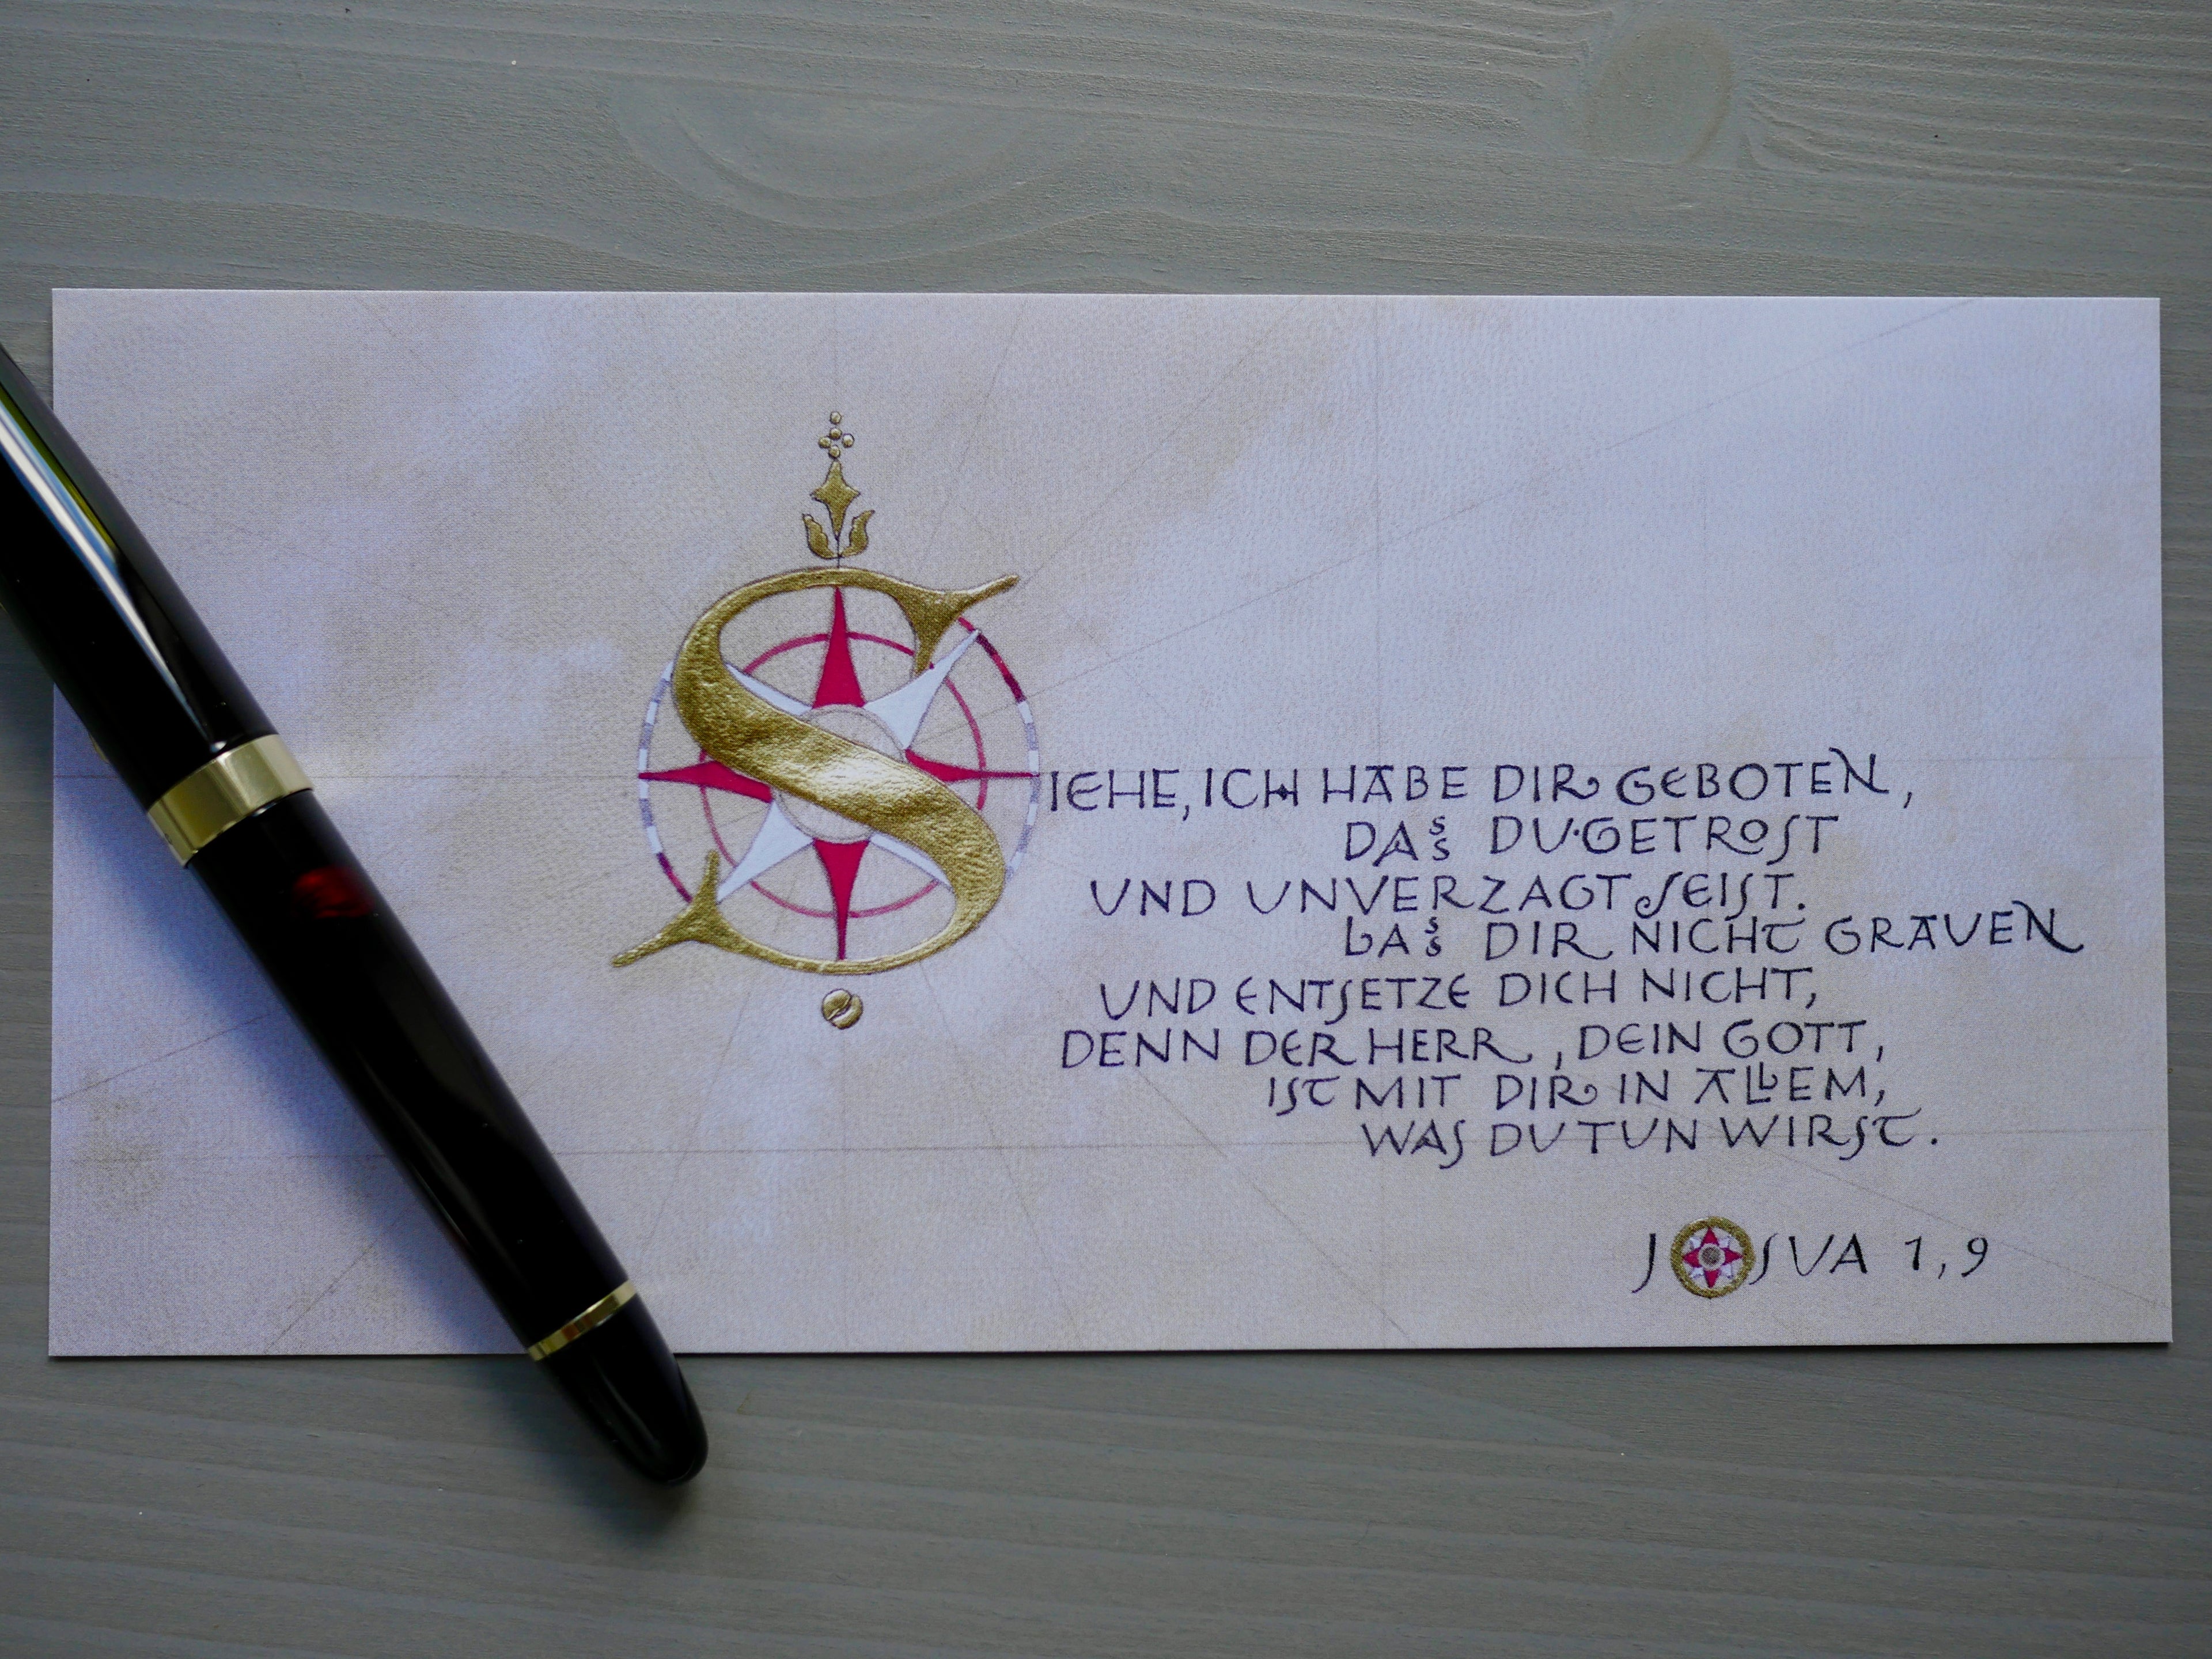 SIEHE, ICH HABE DIR GEBOTEN,
DASS DU GETROST
UND UNVERZAGT SEIST.
LASS DIR NICHT GRAUEN
UND ENTSETZE DICH NICHT,
DENN DER HERR, DEIN GOTT,
IST MIT DIR IN ALLEM,
WAS DU TUN WIRST.
JOSVA 1,9